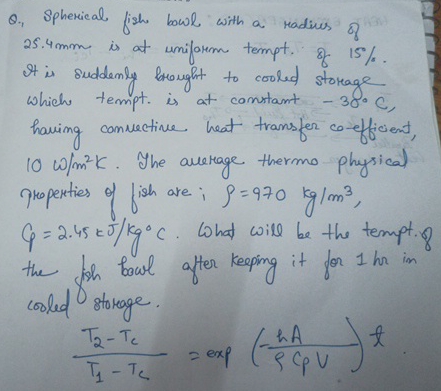 Q., Spherical fish bowl with a radius of
25.4mm is at uniform tempt. of 15%.
It is suddenly brought to cooled storage
which tempt. is at constant - 30° C,
having convective heat transfer co-efficient,
10 W/m²K. The average thermo physical
properties of fish are ; ρ = 970 kg/m³,
Cp = 2.45 kJ/kg°C. What will be the tempt. of
the fish bowl after keeping it for 1 hr in
cooled storage.
T₂ - Tc / T₁ - Tc = exp (- hA / ρ Cp V) t